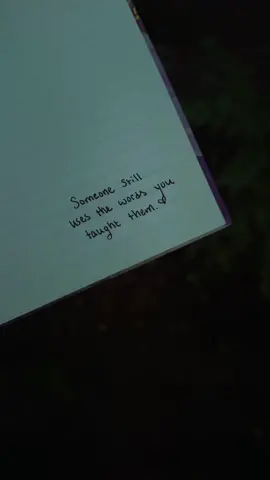 Someone still
uses the words you
taught them.